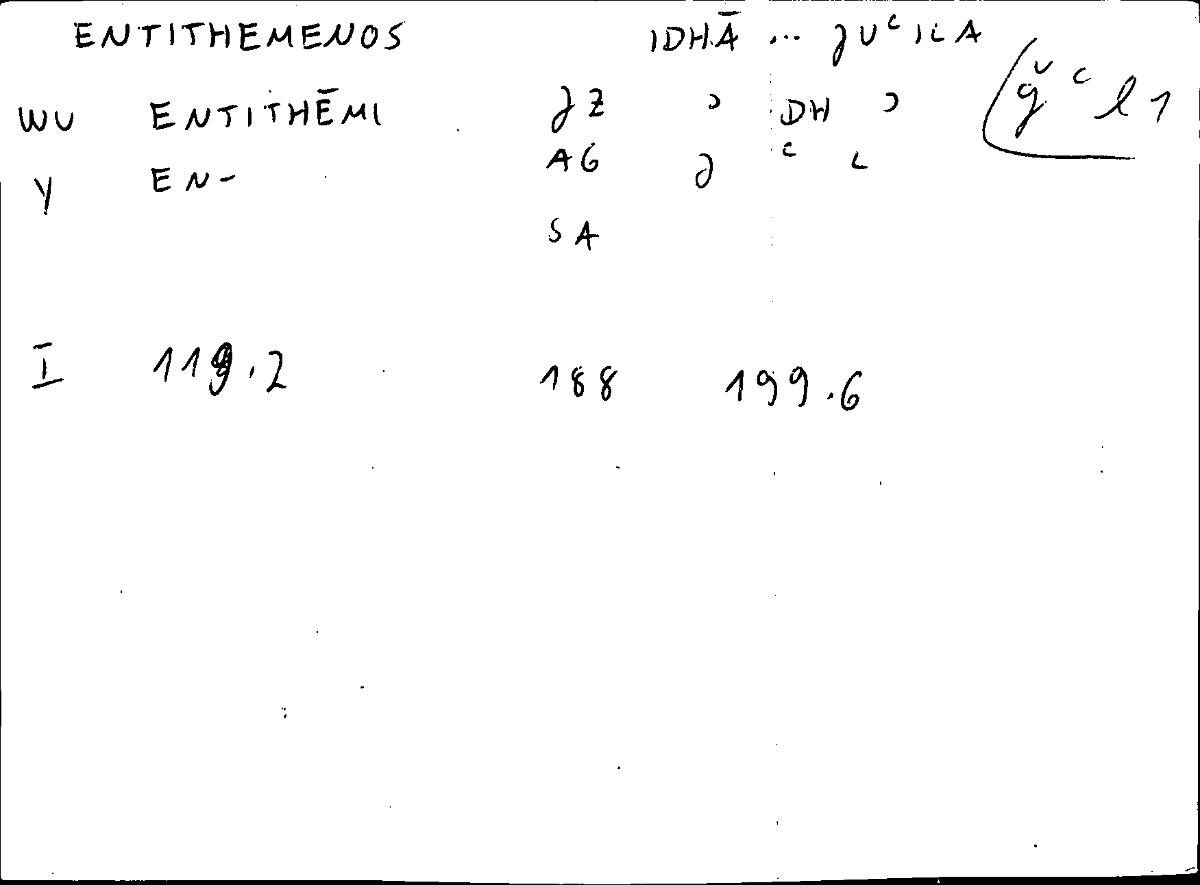 ENTITHEMENOS IDHĀ ... ʒUᶜILA
WU ENTITHĒMI ʒZ ɔ DH ɔ ǧ ᶜ l 1
Y EN- AG ʒ ᶜ L
SA
I 119.2 188 199.6